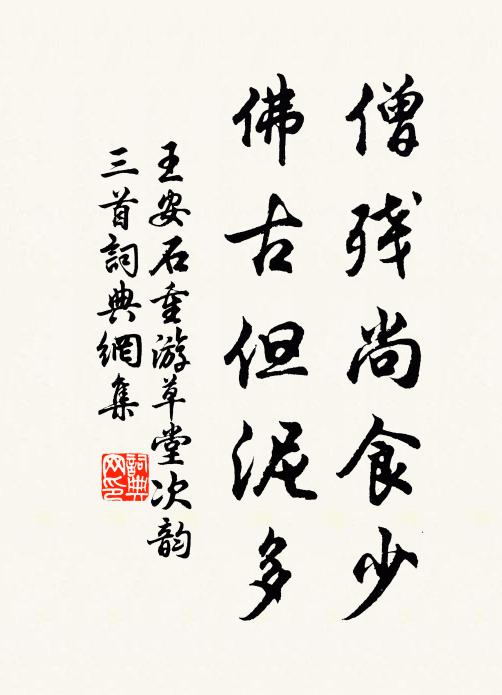 僧残尚食少
佛古但泥多
王安石重游草堂次韵
三首詞典網集
詞典
网印